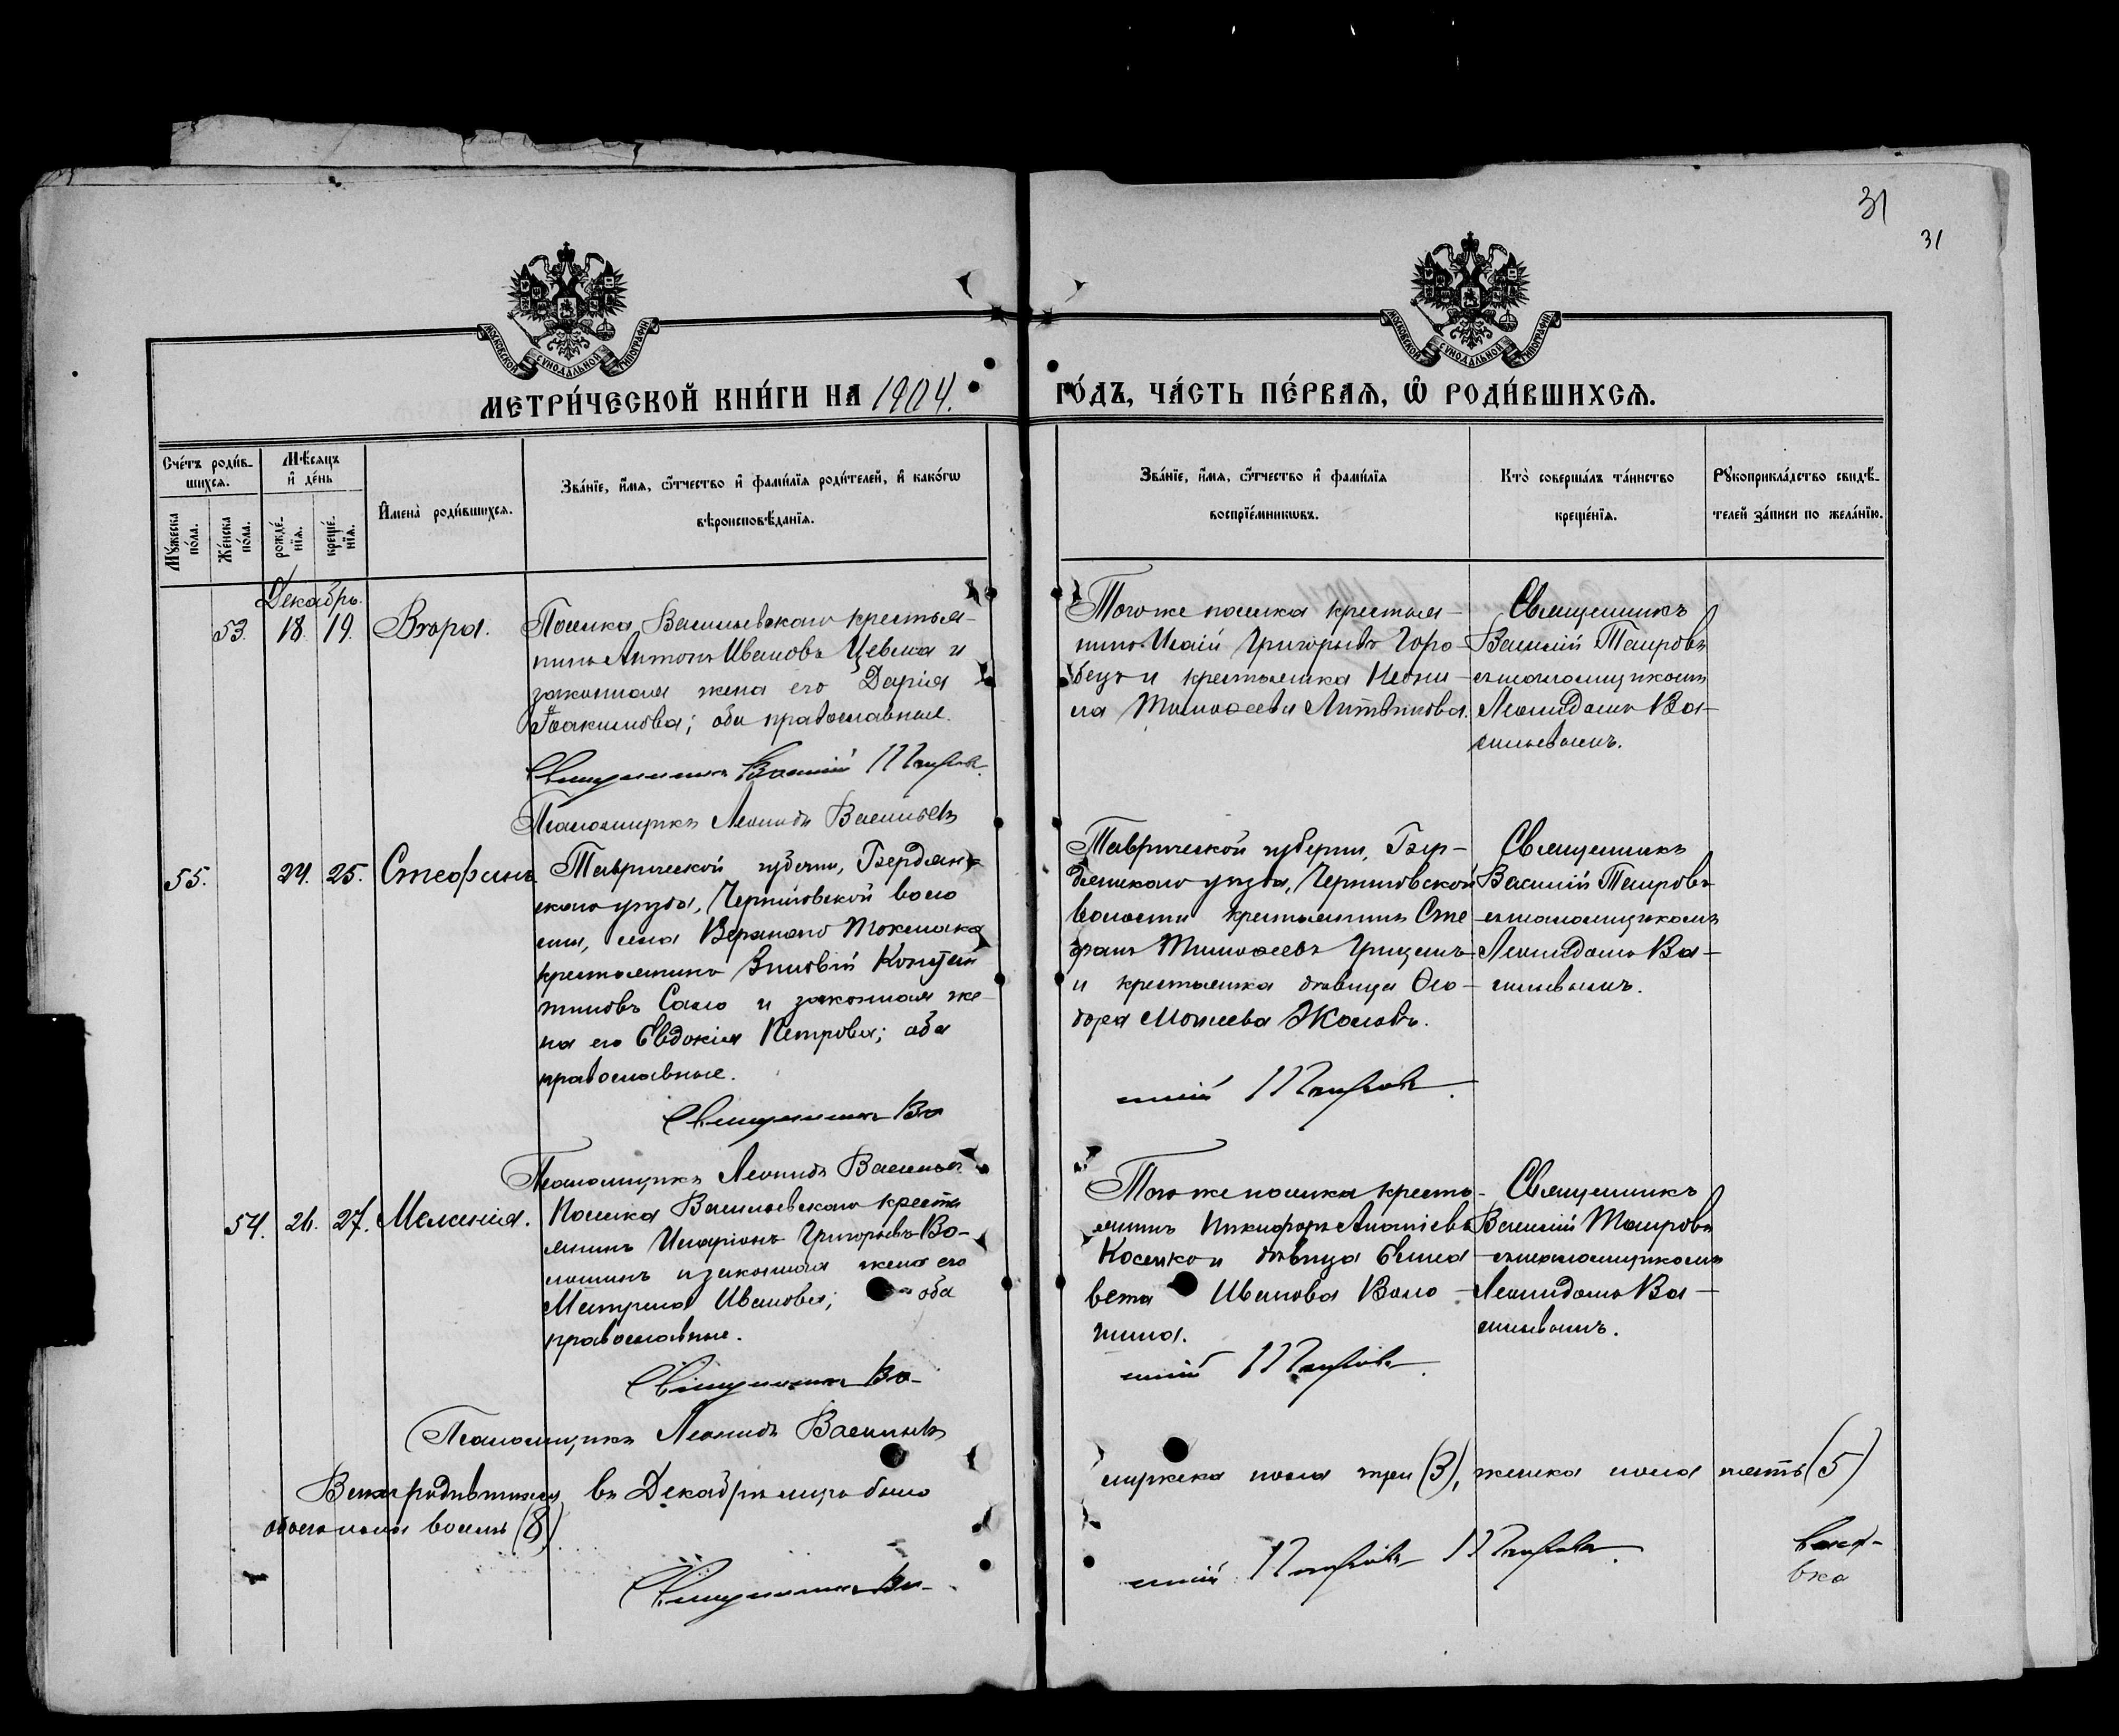 31
31
МОСКОВСКОЙ СУНОДАЛЬНОЙ ТИПОГРАФИИ
МОСКОВСКОЙ СУНОДАЛЬНОЙ ТИПОГРАФИИ
МЕТРИ́ЧЕСКОЙ КНИ́ГИ НА 1904.
ГО́ДЪ, ЧА́СТЬ ПЕ́РВАЯ, Ѡ РОДИ́ВШИХСЯ.
Сче́тъ роди́в-
шихся.
Мужеска по́ла.
Же́нска по́ла.
Мѣ́сяцъ
и де́нь
рожде́-
нїя.
креще́-
нїя.
Имена̀ роди́вшихся.
Зва́нїе, и́мя, ѻ́тчество и фами́лїя роди́телей, и како́гѡ
вѣроисповѣ́данїя.
Зва́нїе, и́мя, ѻ́тчество и фами́лїя
воспрїе́мникѡвъ.
Кто̀ соверша́лъ та́инство
креще́нїя.
Рукоприкла́дство свидѣ́-
телей за́писи по жела́нїю.
Декабрь.
53. 18. 19. Вѣра.
Поселка Васильевскаго крестья-
нинъ Антонъ Ивановъ и
законная жена его Дарія
Іоакимова; оба православные.
Священникъ Василій Таировъ
Псаломщикъ Леонидъ Васильевъ
Того же поселка крестья-
нинъ Исаій Григорьевъ Горо-
бецъ и крестьянка Неони-
ла Тимоѳеева Литвинова.
Священникъ
Василій Таировъ
съ псаломщикомъ
Леонидомъ Ва-
сильевымъ.
55. 24. 25. Стефанъ
Таврической губерніи, Бердян-
скаго уѣзда, Черниговской воло
сти, села Верхняго Токмака
крестьянинъ Зиновій Констан
тиновъ Сало и законная же-
на его Евдокія Петрова; оба
православные.
Священникъ Ва
силій Таировъ
Псаломщикъ Леонидъ Васильевъ
Таврической губерніи, Бер-
дянскаго уѣзда, Черниговской
волости крестьянинъ Сте
фанъ Тимоѳеевъ Гриценко
и крестьянка дѣвица Ѳео-
дора Моисеева
Священникъ
Василій Таировъ
съ псаломщикомъ
Леонидомъ Ва-
сильевымъ.
54. 26. 27. Меланія.
Поселка Васильевскаго кресть
янинъ Иларіонъ Григорьевъ Во-
лошинъ и законная жена его
Матрена Иванова; оба
православные.
Священникъ Ва-
силій Таировъ
Псаломщикъ Леонидъ Васильевъ
Того же поселка кресть-
янинъ Никифоръ Ананіевъ
Косенко и дѣвица Елиса
вета Иванова Воло-
шина.
Священникъ
Василій Таировъ
съ псаломщикомъ
Леонидомъ Ва-
сильевымъ.
Всехъ родившихся въ Декабрѣ мѣсяцѣ было
мужеска пола три (3), женска пола пять (5)
обоего пола восемь (8)
Священникъ Ва-
силій Таировъ